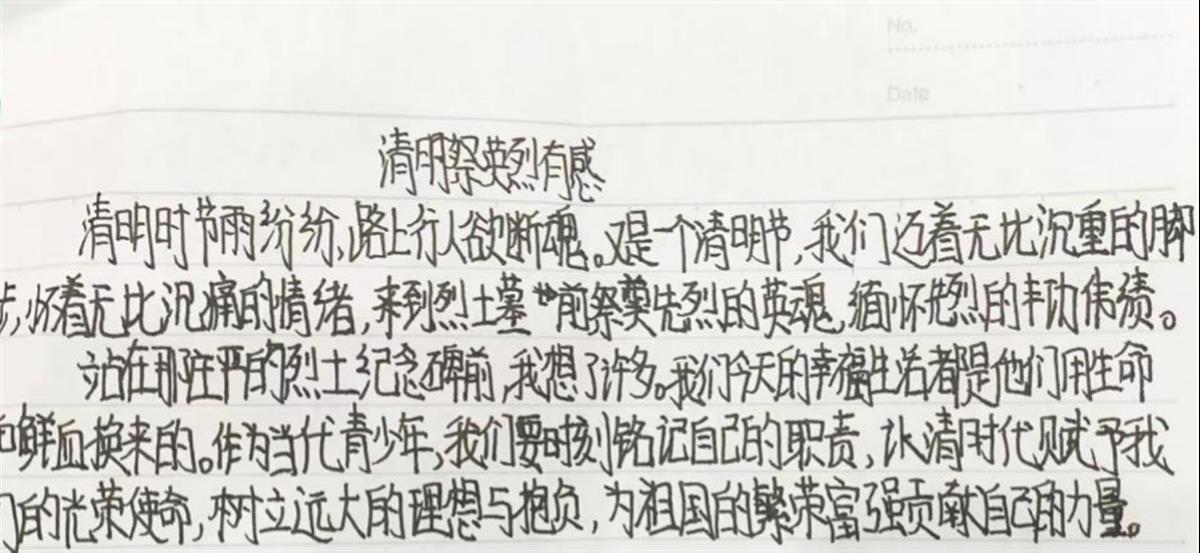 No.
Date
清明祭英烈有感
清明时节雨纷纷,路上行人欲断魂。又是一个清明节,我们迈着无比沉重的脚
步,怀着无比沉痛的情绪,来到烈士墓前祭奠先烈的英魂,缅怀先烈的丰功伟绩。
站在那庄严的烈士纪念碑前,我想了许多。我们今天的幸福生活都是他们用生命
和鲜血换来的。作为当代青少年,我们要时刻铭记自己的职责,认清时代赋予我
们的光荣使命,树立远大的理想与抱负,为祖国的繁荣富强贡献自己的力量。